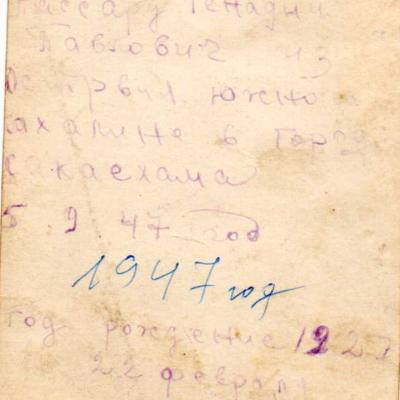 Генадии
Павлович из
южно
Сахалине в город
касхама
5 9 47 год
1947 год
год рождение 1927
22 февраля